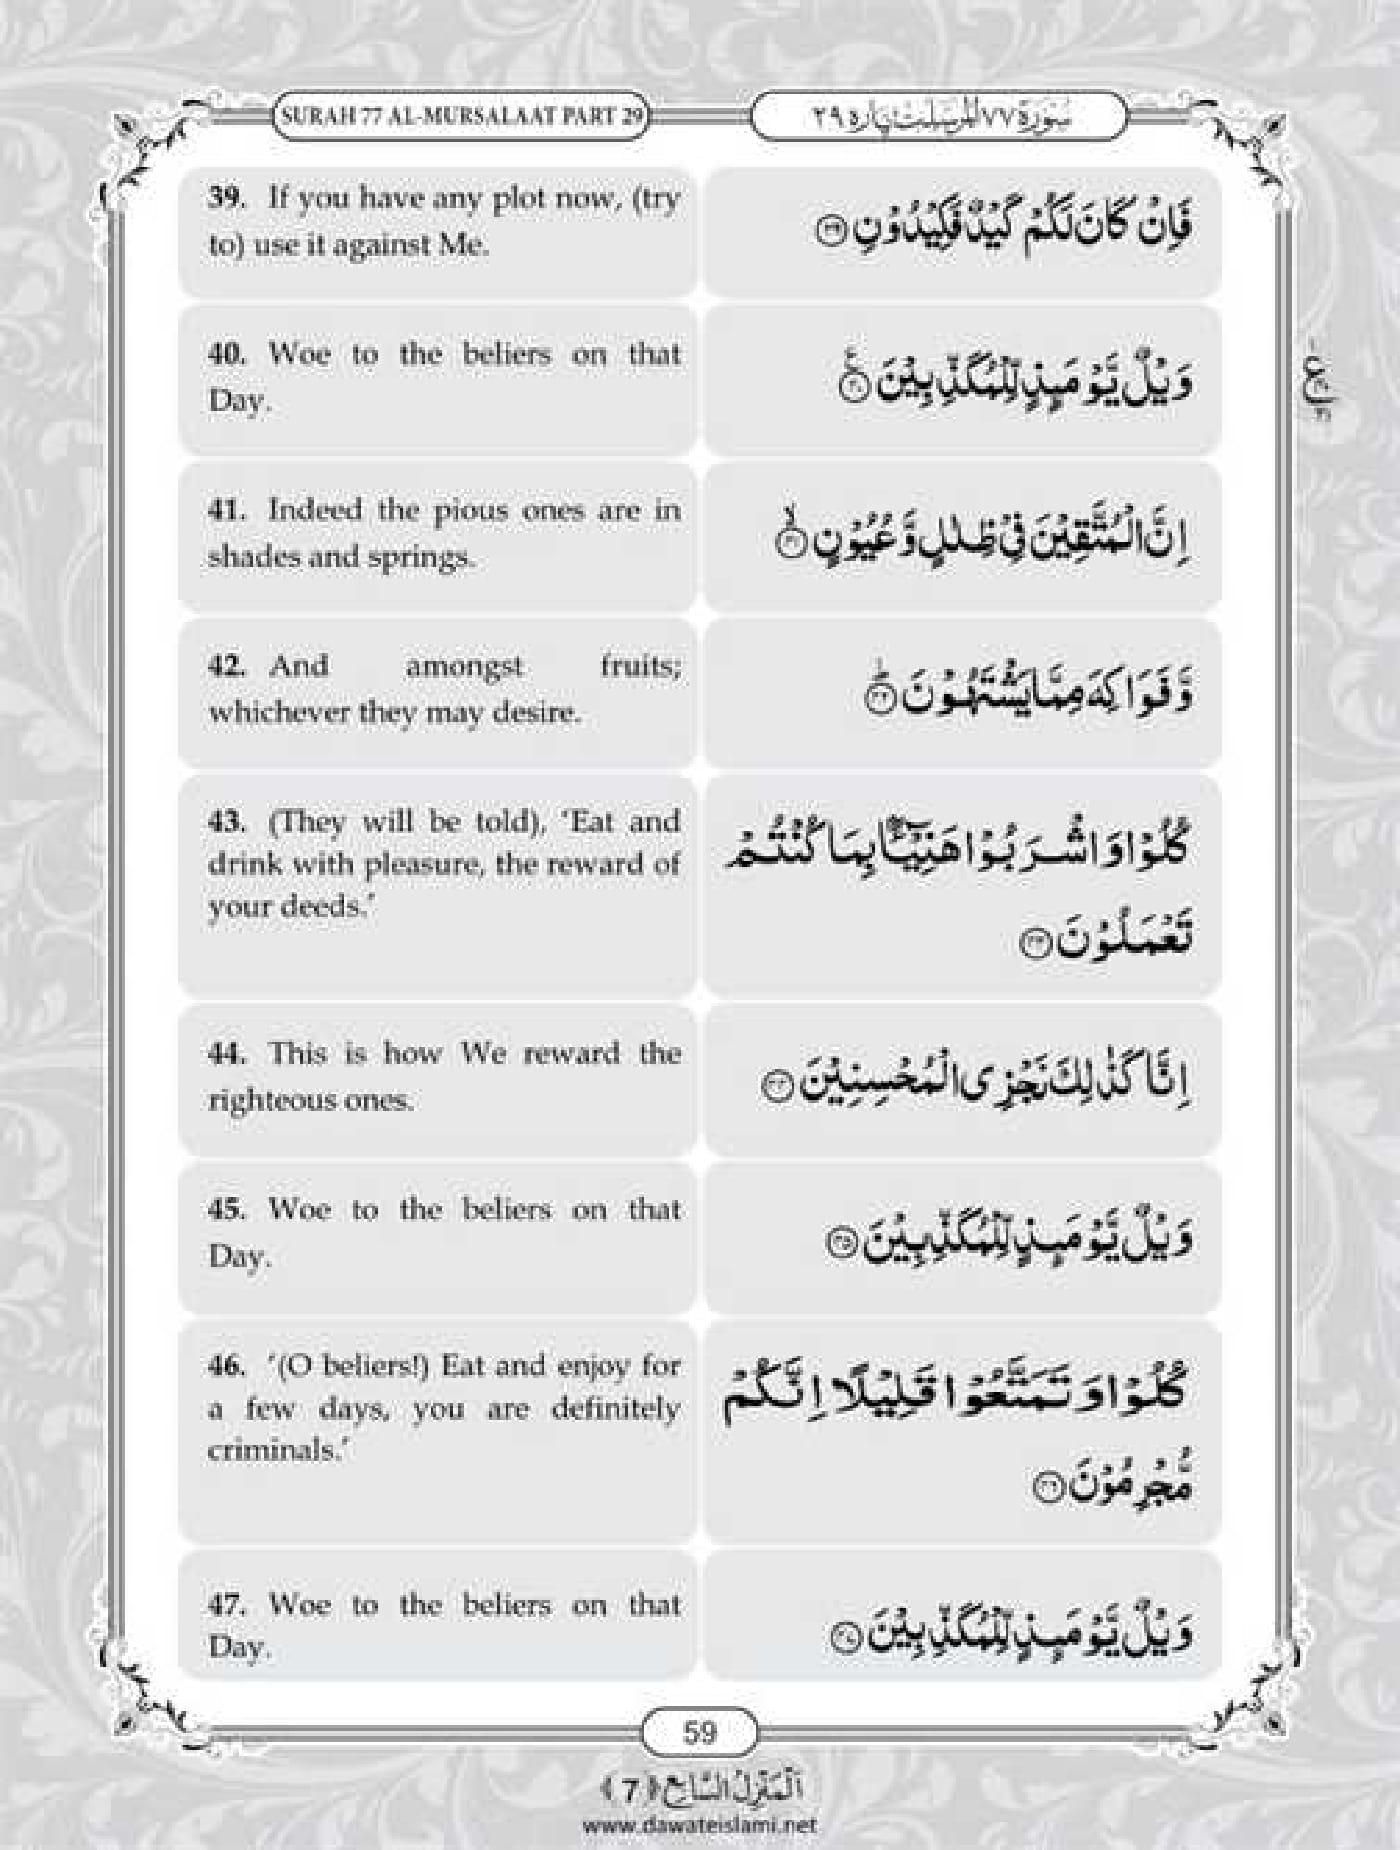 SURAH 77 AL-MURSALAAT PART 29
سُوْرَةُ ٧٧ الْمُرْسَلٰت پاره ٢٩
39. If you have any plot now, (try
to) use it against Me.
فَاِنْ كَانَ لَكُمْ كَيْدٌ فَكِيْدُوْنِ ﴿٣٩﴾
40. Woe to the beliers on that
Day.
وَيْلٌ يَّوْمَىِٕذٍ لِّلْمُكَذِّبِيْنَ ﴿٤٠﴾
ع
41. Indeed the pious ones are in
shades and springs.
اِنَّ الْمُتَّقِيْنَ فِيْ ظِلٰلٍ وَّعُيُوْنٍ ﴿٤١﴾
42. And amongst fruits;
whichever they may desire.
وَّفَوَاكِهَ مِمَّا يَشْتَهُوْنَ ﴿٤٢﴾
43. (They will be told), ‘Eat and
drink with pleasure, the reward of
your deeds.’
كُلُوْا وَاشْرَبُوْا هَنِيْٓـًٔۢا بِمَا كُنْتُمْ
تَعْمَلُوْنَ ﴿٤٣﴾
44. This is how We reward the
righteous ones.
اِنَّا كَذٰلِكَ نَجْزِى الْمُحْسِنِيْنَ ﴿٤٤﴾
45. Woe to the beliers on that
Day.
وَيْلٌ يَّوْمَىِٕذٍ لِّلْمُكَذِّبِيْنَ ﴿٤٥﴾
46. ‘(O beliers!) Eat and enjoy for
a few days, you are definitely
criminals.’
كُلُوْا وَتَمَتَّعُوْا قَلِيْلًا اِنَّكُمْ
مُّجْرِمُوْنَ ﴿٤٦﴾
47. Woe to the beliers on that
Day.
وَيْلٌ يَّوْمَىِٕذٍ لِّلْمُكَذِّبِيْنَ ﴿٤٧﴾
59
اَلْمَنْزِلُ السَّابِع ﴿7﴾
www.dawateislami.net